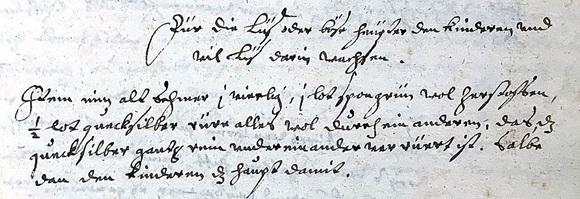 Für die Lüs oder böse heüpter den kinderen und
vil Lüs darin wachsen.
Item nim alt Schmer j vierlig, j lot spongrün wol herstossen,
½ lot quecksilber rüre alles wol durch ein anderen, das dz
quecksilber gantz rein under einander verrüert ist. Salbe
dan den kinderen dz haupt damit.